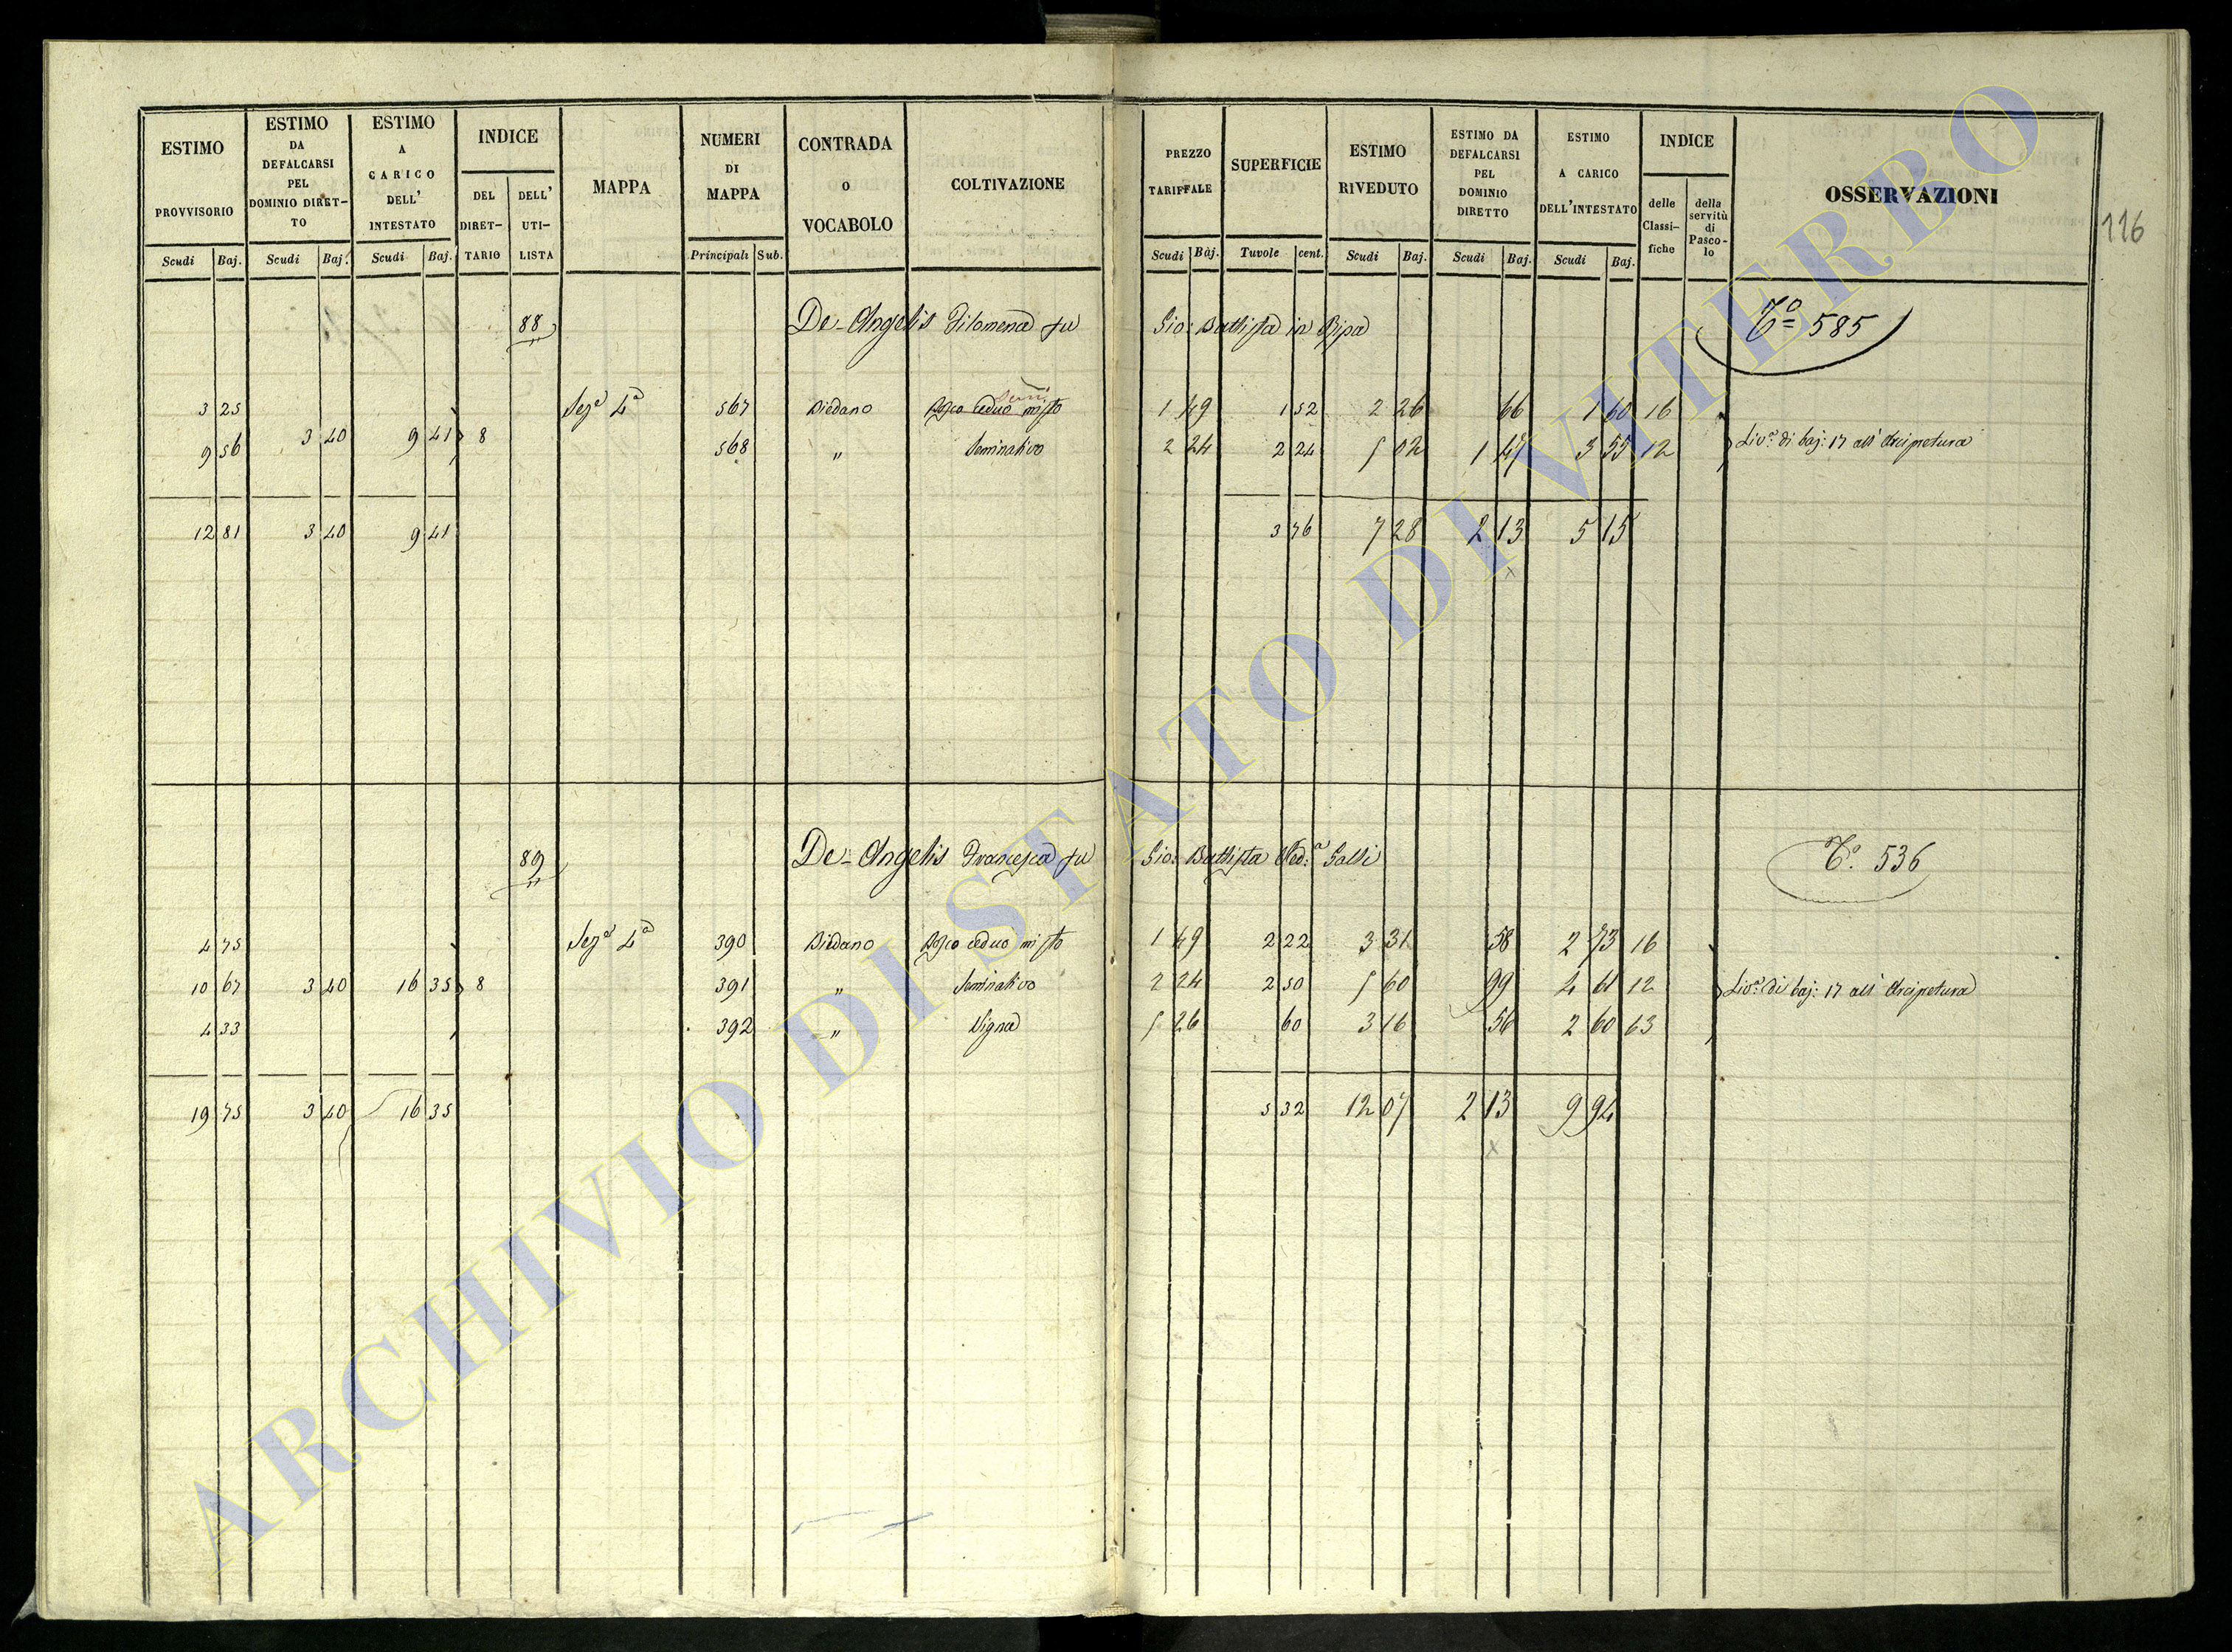 ESTIMO PROVVISORIO Scudi Baj.
ESTIMO DA DEFALCARSI PEL DOMINIO DIRET-TO Scudi Baj.
ESTIMO A CARICO DELL' INTESTATO Scudi Baj.
INDICE DEL DIRET-TARIO DELL' UTI-LISTA
MAPPA
NUMERI DI MAPPA Principali Sub.
CONTRADA O VOCABOLO
COLTIVAZIONE
PREZZO TARIFFALE Scudi Baj.
SUPERFICIE Tavole cent.
ESTIMO RIVEDUTO Scudi Baj.
ESTIMO DA DEFALCARSI PEL DOMINIO DIRETTO Scudi Baj.
ESTIMO A CARICO DELL'INTESTATO Scudi Baj.
INDICE delle Classi-fiche della servitù di Pasco-lo
OSSERVAZIONI
116
88 De-Angelis Filomena fu Gio: Battista in Ripa Tº 585
3 25 Sezª 4ª 567 Biedano Bosco ceduo misto Sem: 1 49 1 52 2 26 66 1 60 16
9 56 3 40 9 41 8 568 " Seminativo 2 24 2 24 5 02 1 47 3 55 12 Livº: di baj: 17 all' Arcipretura
12 81 3 40 9 41 3 76 7 28 2 13 5 15
x
89 De-Angelis Francesca fu Gio: Battista Ved:ª Galli Tº. 536
4 75 Sezª 4ª 390 Biedano Bosco ceduo misto 1 49 2 22 3 31 58 2 73 16
10 67 3 40 16 35 8 391 " Seminativo 2 24 2 50 5 60 99 4 61 12 Livº: di baj: 17 all' Arcipretura
4 33 392 " Vigna 5 26 60 3 16 56 2 60 63
19 75 3 40 16 35 5 32 12 07 2 13 9 94
x
ARCHIVIO DI STATO DI VITERBO